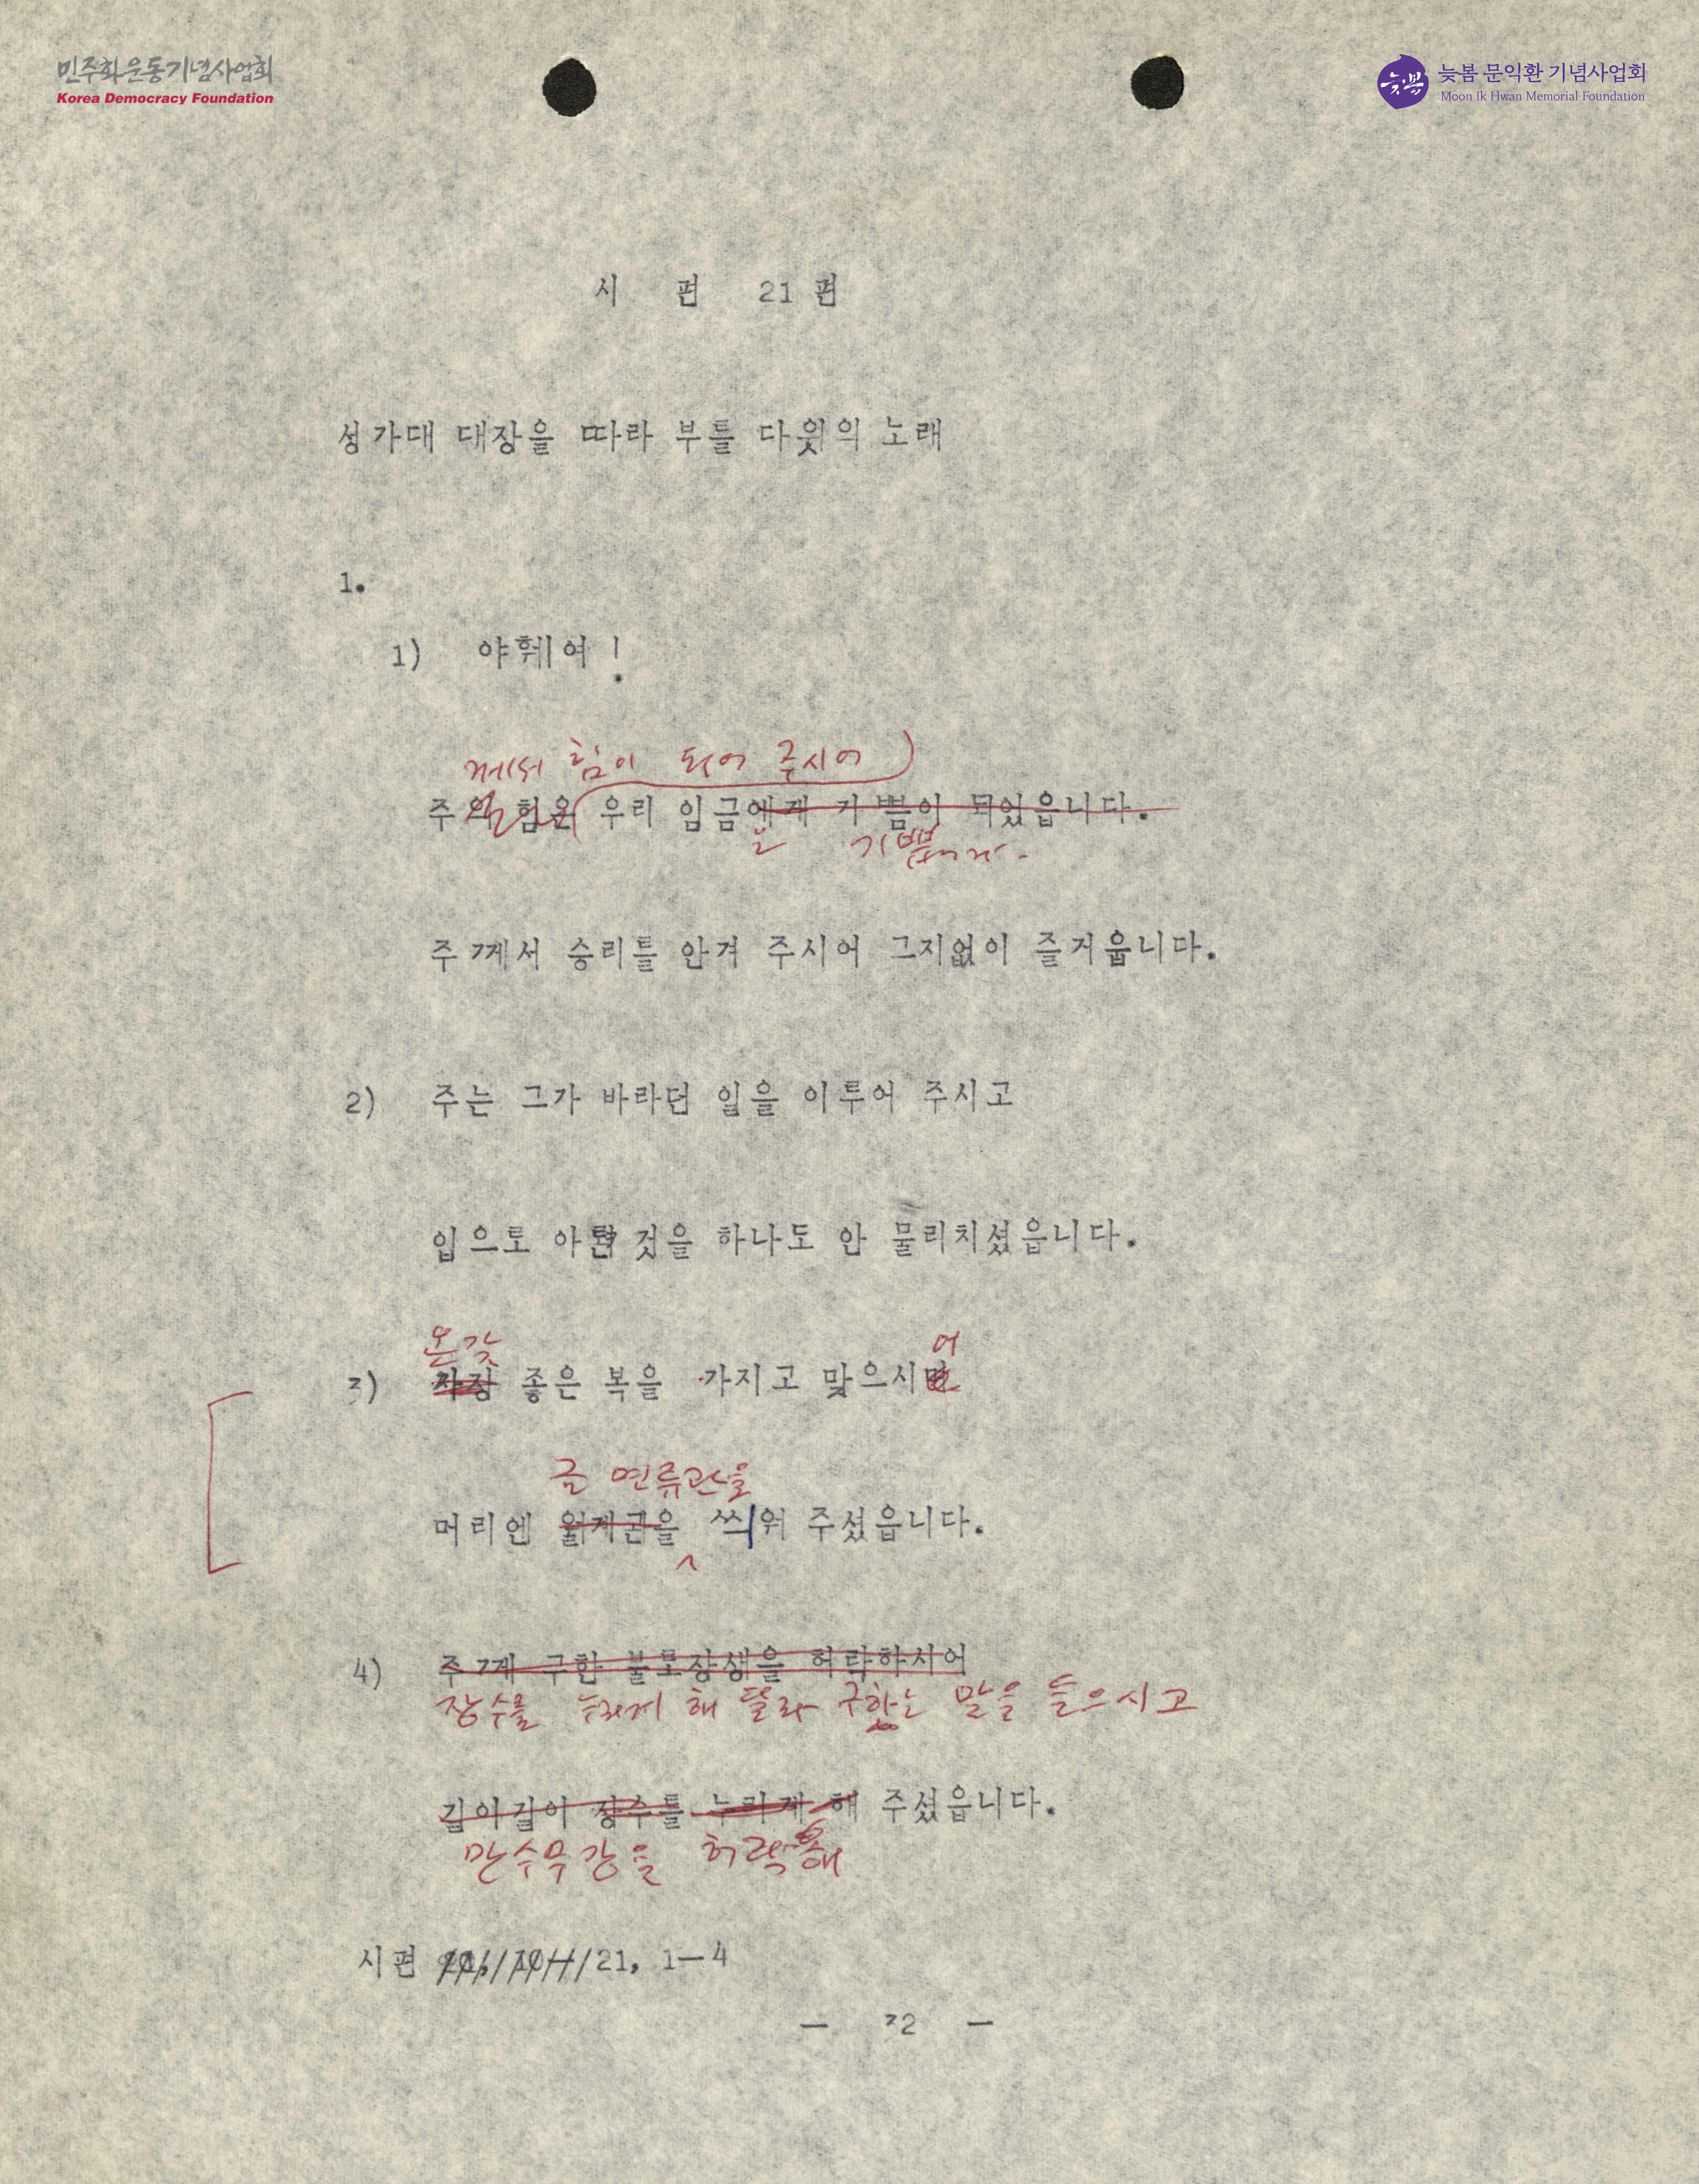 민주화운동기념사업회
Korea Democracy Foundation
늦봄 문익환 기념사업회
Moon Ik Hwan Memorial Foundation
시 편 21 편
성가대 대장을 따라 부를 다윗의 노래
1.
1) 야훼여!
께서 힘이 되어 주시어
주의 힘은 우리 임금에게 기쁨이 되었읍니다.
은 기쁩니다.
주께서 승리를 안겨 주시어 그지없이 즐거웁니다.
2) 주는 그가 바라던 일을 이루어 주시고
입으로 아뢴 것을 하나도 안 물리치셨읍니다.
온갖 어
3) 좋은 복을 가지고 맞으시며
금 면류관을
머리엔 월계관을 씌워 주셨읍니다.
4) 주께 구한 불로장생을 허락하시어
장수를 누리게 해 달라 구하는 말을 들으시고
길이길이 장수를 누리게 해 주셨읍니다.
만수무강을 허락해
시편 21, 1-4
- 32 -